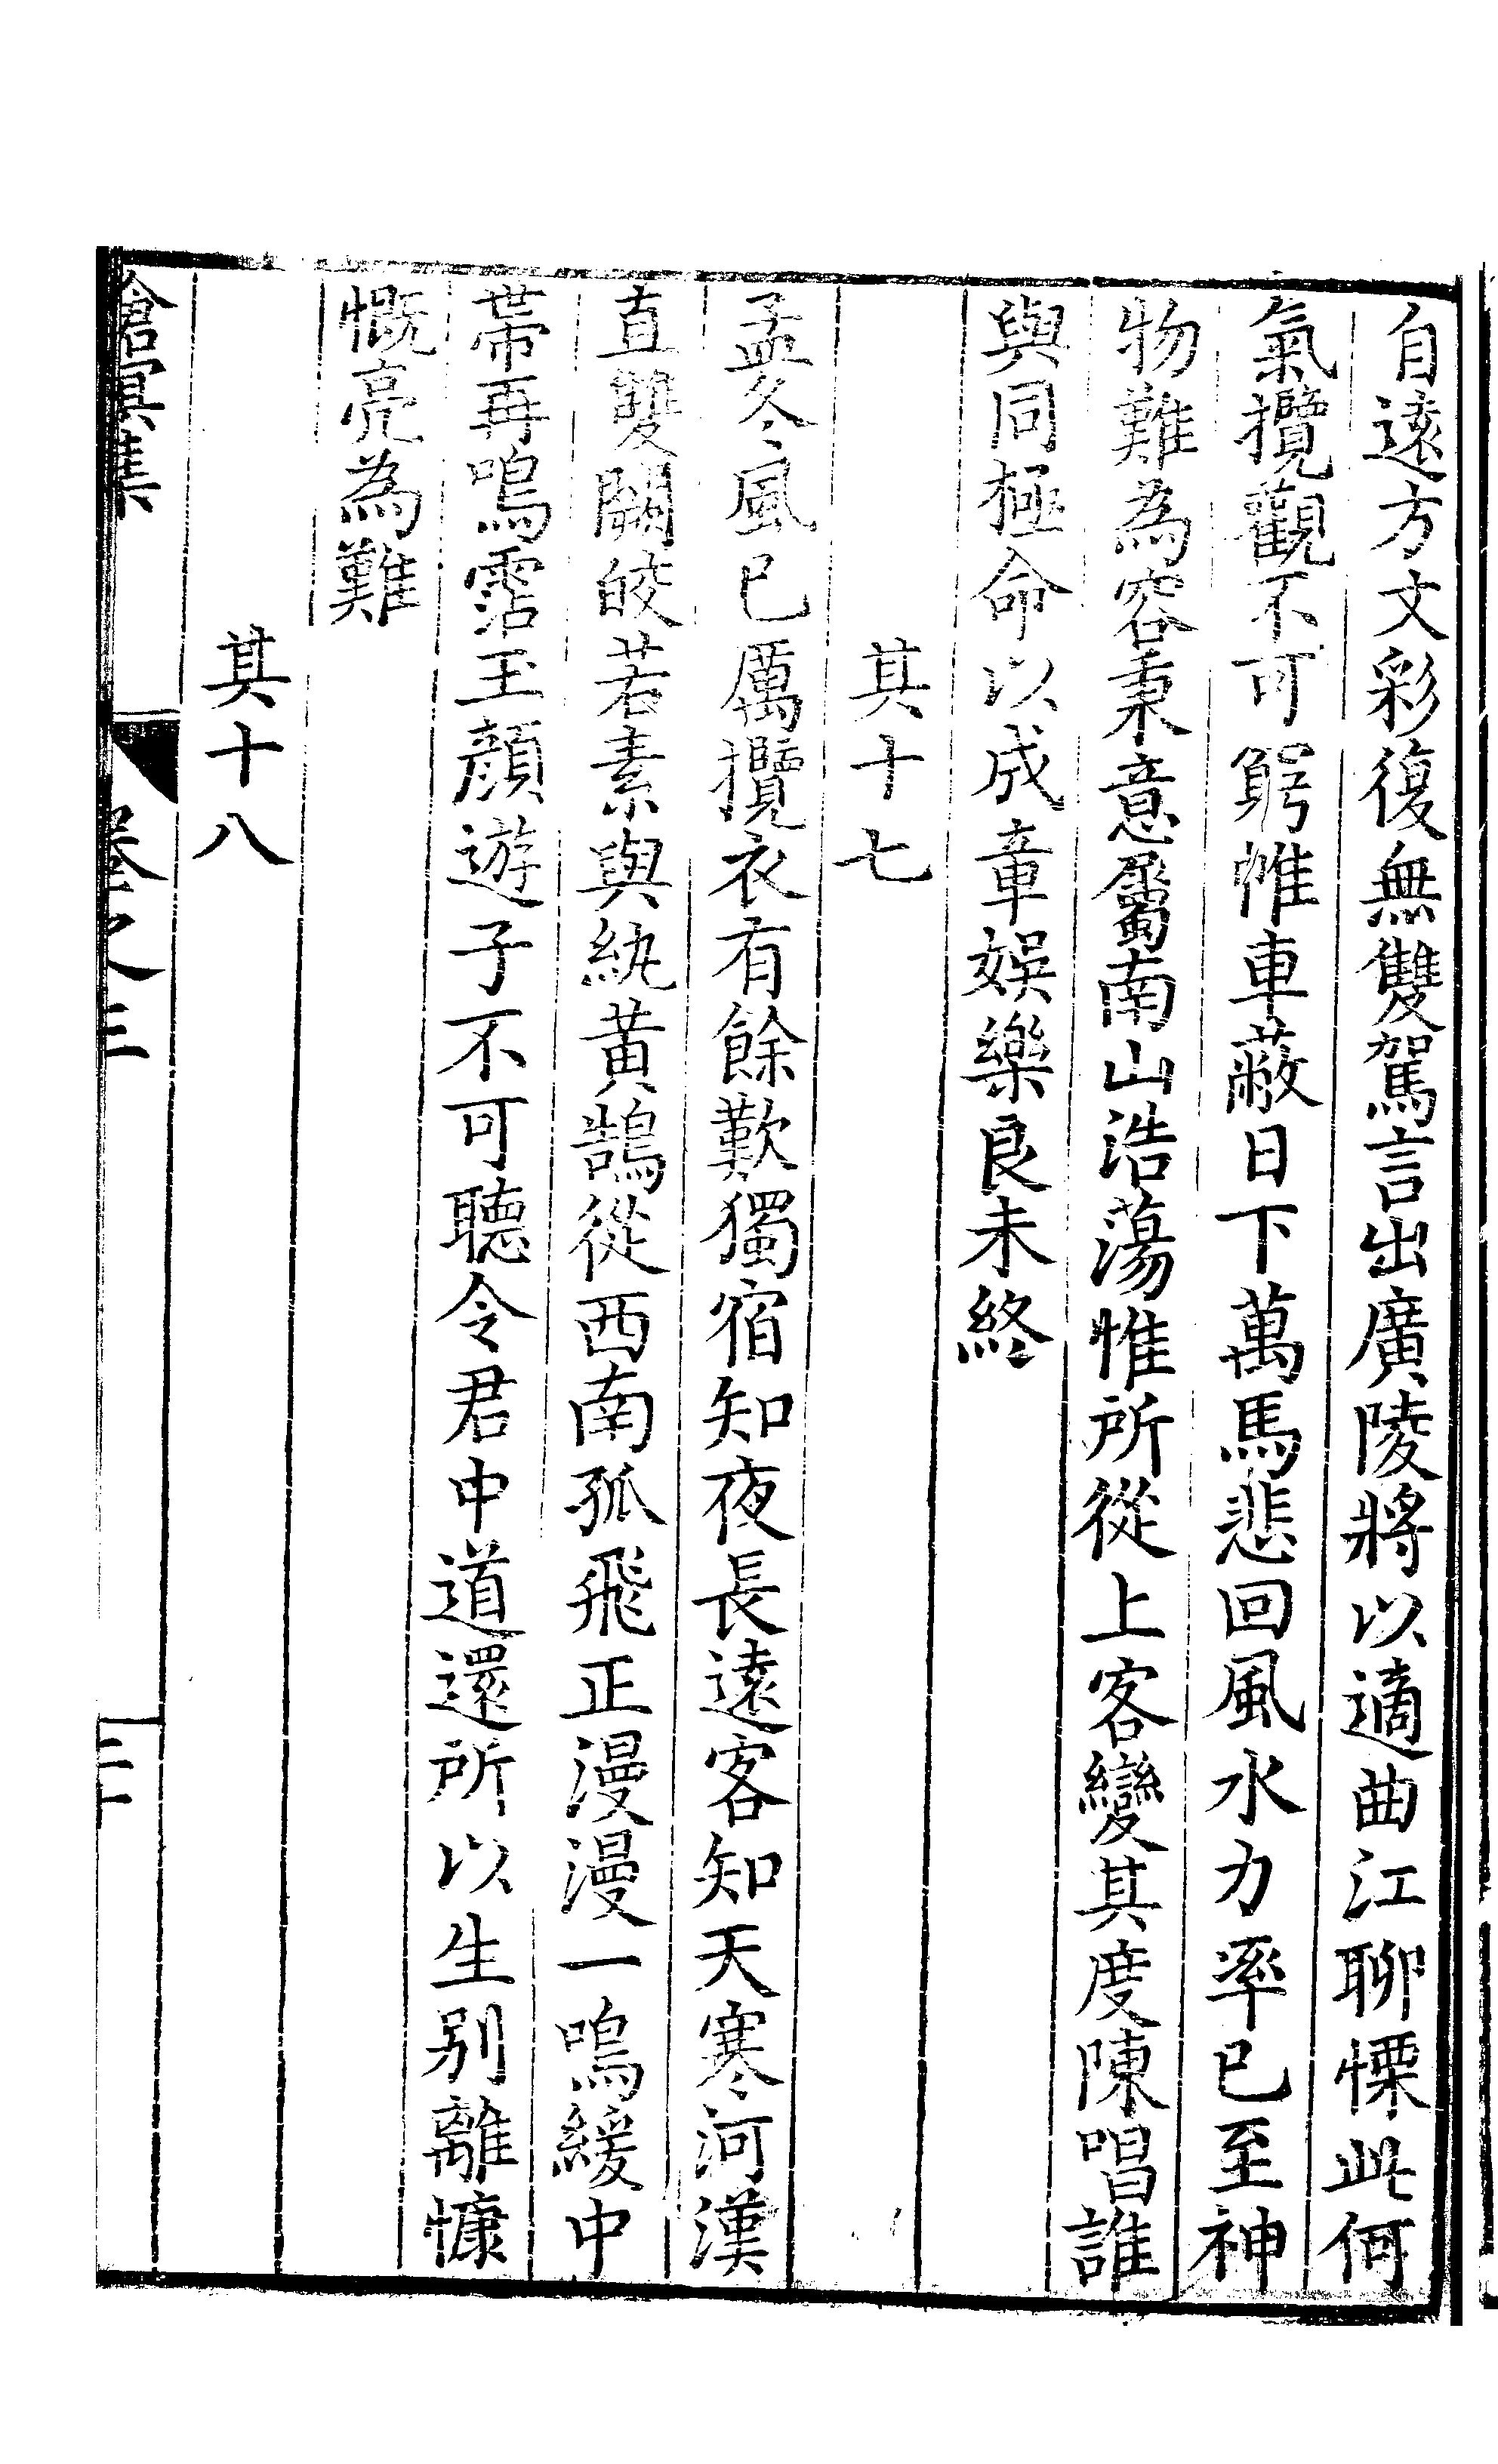 自遠方文彩復無雙駕言出廣陵將以適曲江聊慄此何
氣攬觀不可窮帷車蔽日下萬馬悲回風水力率已至神
物難為容秉意屬南山浩蕩惟所從上客變其度陳唱誰
與同極命以成章娛樂良未終
其十七
孟冬風已厲攬衣有餘歎獨宿知夜長遠客知天寒河漢
直雙闕皎若素與紈黃鵠從西南孤飛正漫漫一鳴緩中
帶再鳴霑玉顏遊子不可聽令君中道還所以生別離慷
慨亮為難
其十八
滄溟集
卷之三
二十